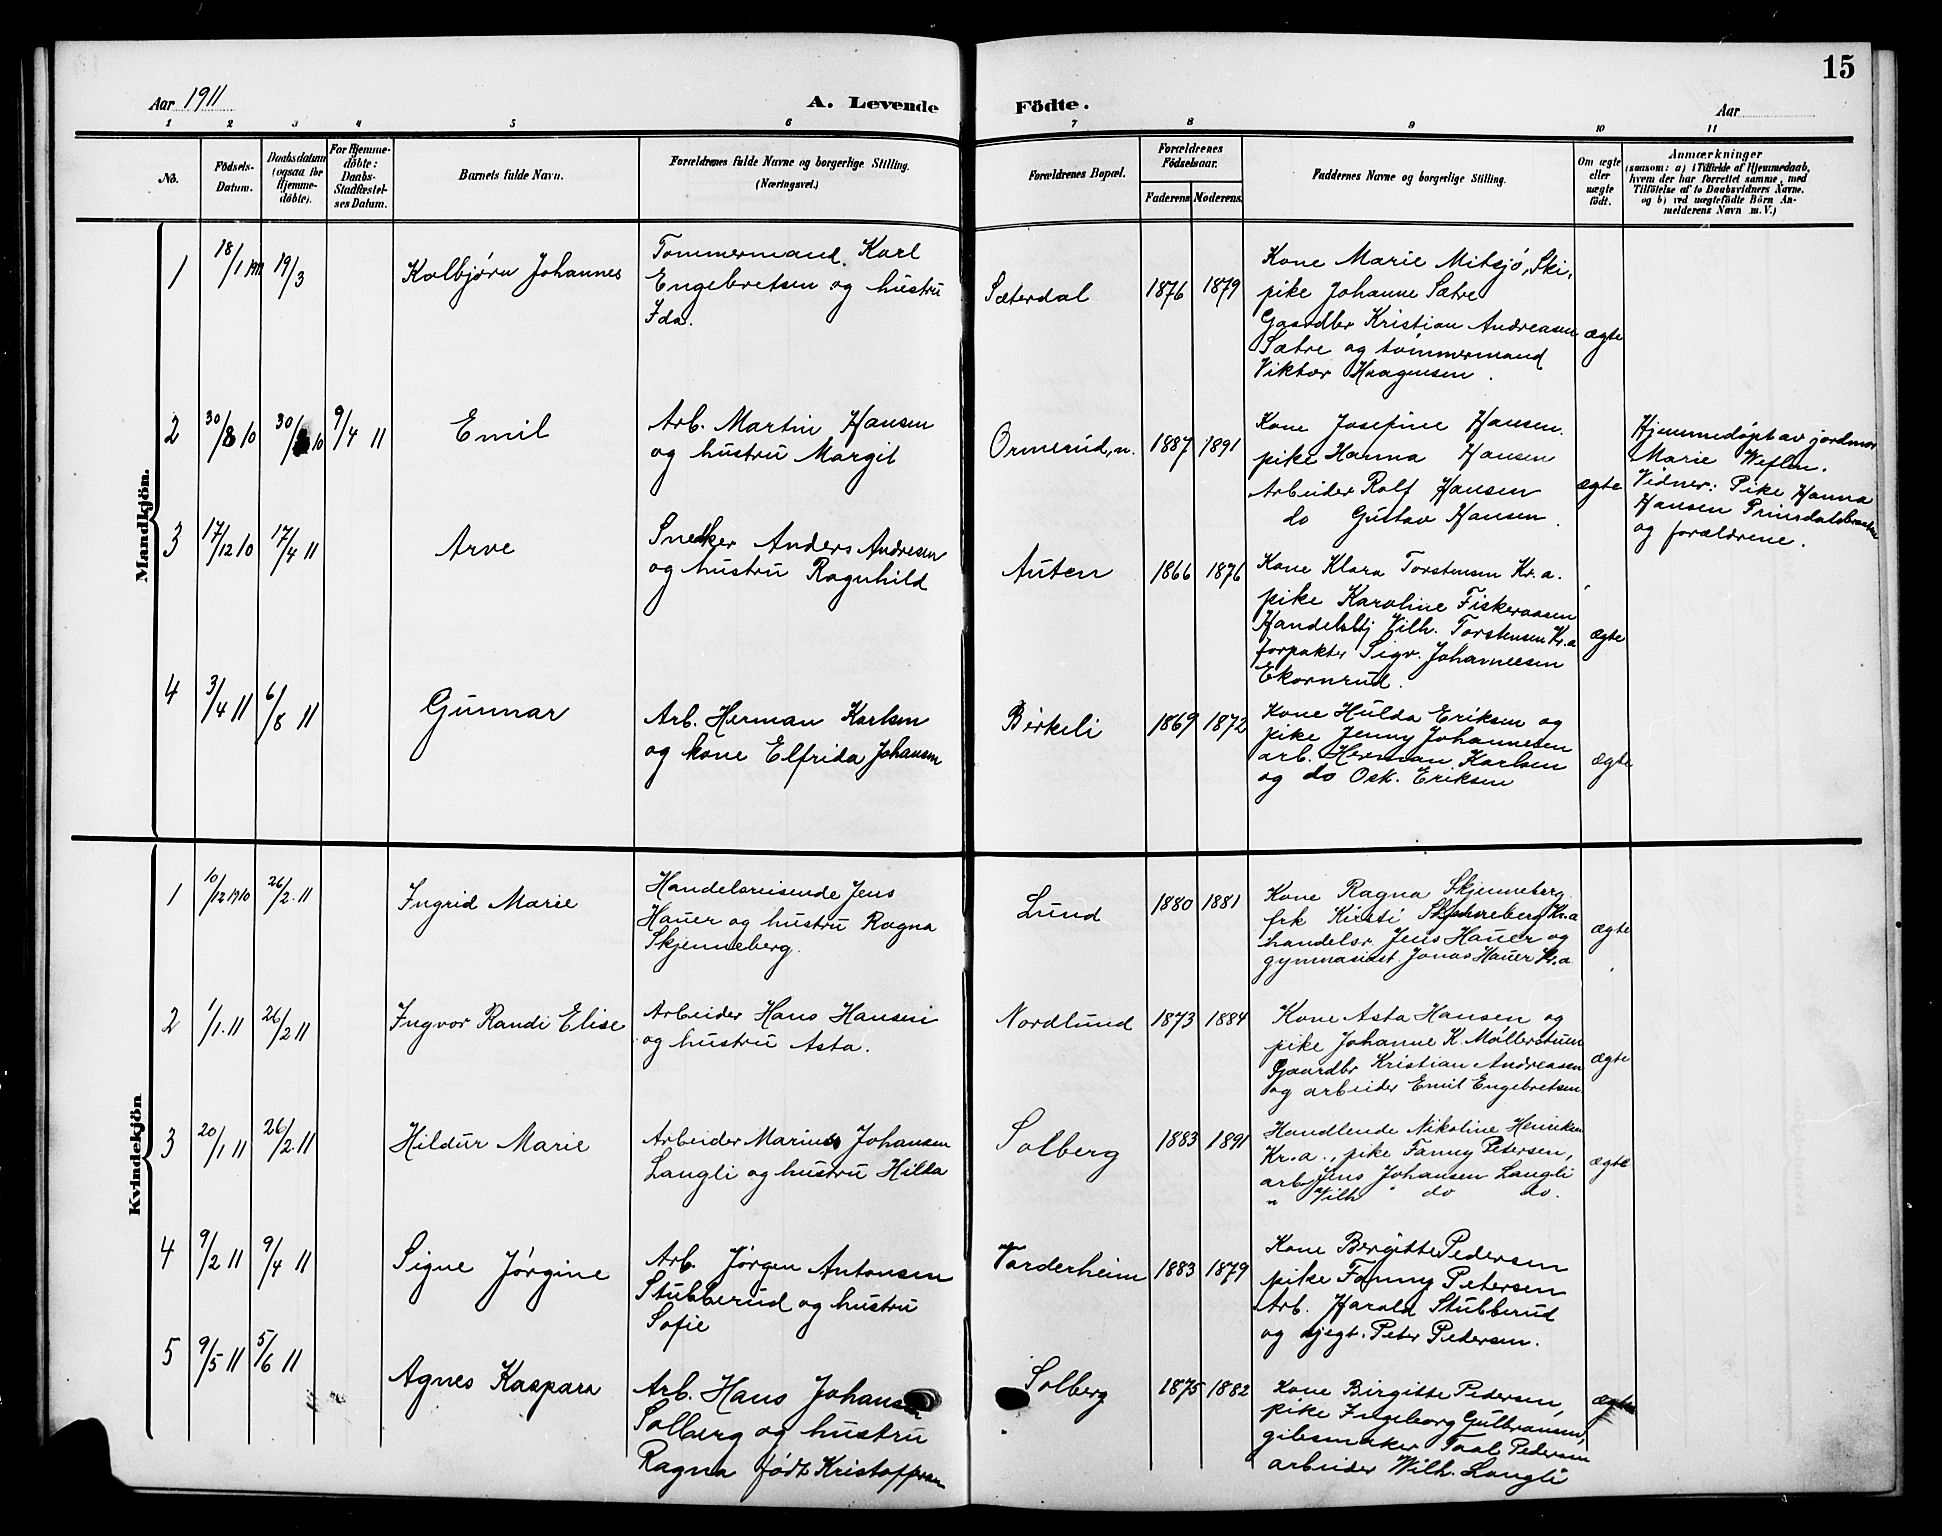 15
Aar 1911
A. Levende Födte.
Aar
1 2 3 4 5 6 7 8 9 10 11
No.
Födsels-Datum.
Daabsdatum (ogsaa for Hjemme-döbte).
For Hjemme-döbte: Daabs-Stadfæstel-ses Datum.
Barnets fulde Navn.
Forældrenes fulde Navne og borgerlige Stilling. (Næringsvei.)
Forældrenes Bopæl.
Forældrenes Födselsaar.
Faderens Moderens.
Faddernes Navne og borgerlige Stilling.
Om ægte eller uægte födt.
Anmærkninger
(saasom: a) i Tilfælde af Hjemmedaab,
hvem der har forrettet samme, med
Tilföielse af to Daabsvidners Navne.
og b) ved uægtefödte Börn An-
melderens Navn m.V.)
Mandkjön.
1 18/1 1911 19/3
Kolbjørn Johannes
Tømmermand Karl
Engebretsen og hustru
Ida.
Sæterdal 1876 1879
Kone Marie Mitsjø, Ski,
pike Johanne Sætre
Gaardbr Kristian Andreasen
Sætre og tømmermand
Viktor Haagensen.
ægte
2 30/8 10 30/8 10 9/4 11
Emil
Arb. Martin Hansen
og hustru Margit
Ormerud, n. 1887 1891
Kone Josefine Hansen.
pike Hanna Hansen
Arbeider Rolf Hansen
do Gustav Hansen.
ægte
Hjemmedøpt av jordmor
Marie Weflen.
Vidner: Pike Hanna
Hansen Prinsdalsbraaten
og forældrene.
3 17/12 10 17/4 11
Arve
Snedker Anders Andresen
og hustru Ragnhild
Auten 1866 1876
Kone Klara Torstensen Kr.a.
pike Karoline Fiskeraasen
Handelsbtj Vilh. Torstensen Kr.a
forpakter Sigv. Johannesen
Ekornrud.
ægte
4 3/4 11 6/8 11
Gunnar
Arb. Herman Karlsen
og kone Elfrida Johansen
Birkeli 1869 1872
Kone Hulda Eriksen og
pike Jenny Johannesen
arb. Herman Karlsen
og do Osk. Eriksen
ægte
Kvindekjön
1 10/12 1910 26/2 11
Ingrid Marie
Handelsreisende Jens
Hauer og hustru Ragna
Skjenneberg.
Lund 1880 1881
Kone Ragna Skjenneberg
frk Kirsti Skjenneberg Kr.a
handelsr. Jens Hauer og
gymnasiast Jonas Hauer Kr.a
ægte
2 1/1 11 26/2 11
Ingvor Randi Elise
Arbeider Hans Hansen
og hustru Asta.
Nordlund 1873 1884
Kone Asta Hansen og
pike Johanne K. Møllerstuen
Gaardbr Kristian Andreasen
og arbeider Emil Engebretsen
ægte
3 20/1 11 26/2 11
Hildur Marie
Arbeider Marius Johansen
Langli og hustru Hilda
Solberg 1883 1891
Handlende Nikoline Henriksen
Kr.a., pike Fanny Petersen,
arb. Jens Johansen Langli
" Vilh do do.
ægte
4 9/2 11 9/4 11
Signe Jørgine
Arb. Jørgen Antonsen
Stubberud og hustru
Sofie
Vorderheim 1883 1879
Kone Birgitte Pedersen
pike Fanny Petersen
Arb. Harald Stubberud
og Peter Pedersen.
5 9/5 11 5/6 11
Agnes Kaspara
Arb. Hans Johansen
Solberg og hustru
Ragna født Kristoffersen
Solberg 1875 1882
Kone Birgitte Pedersen,
pike Ingeborg Gulbransen,
gibsmaker Pedersen
arbeider Wilh. Langli
ægte